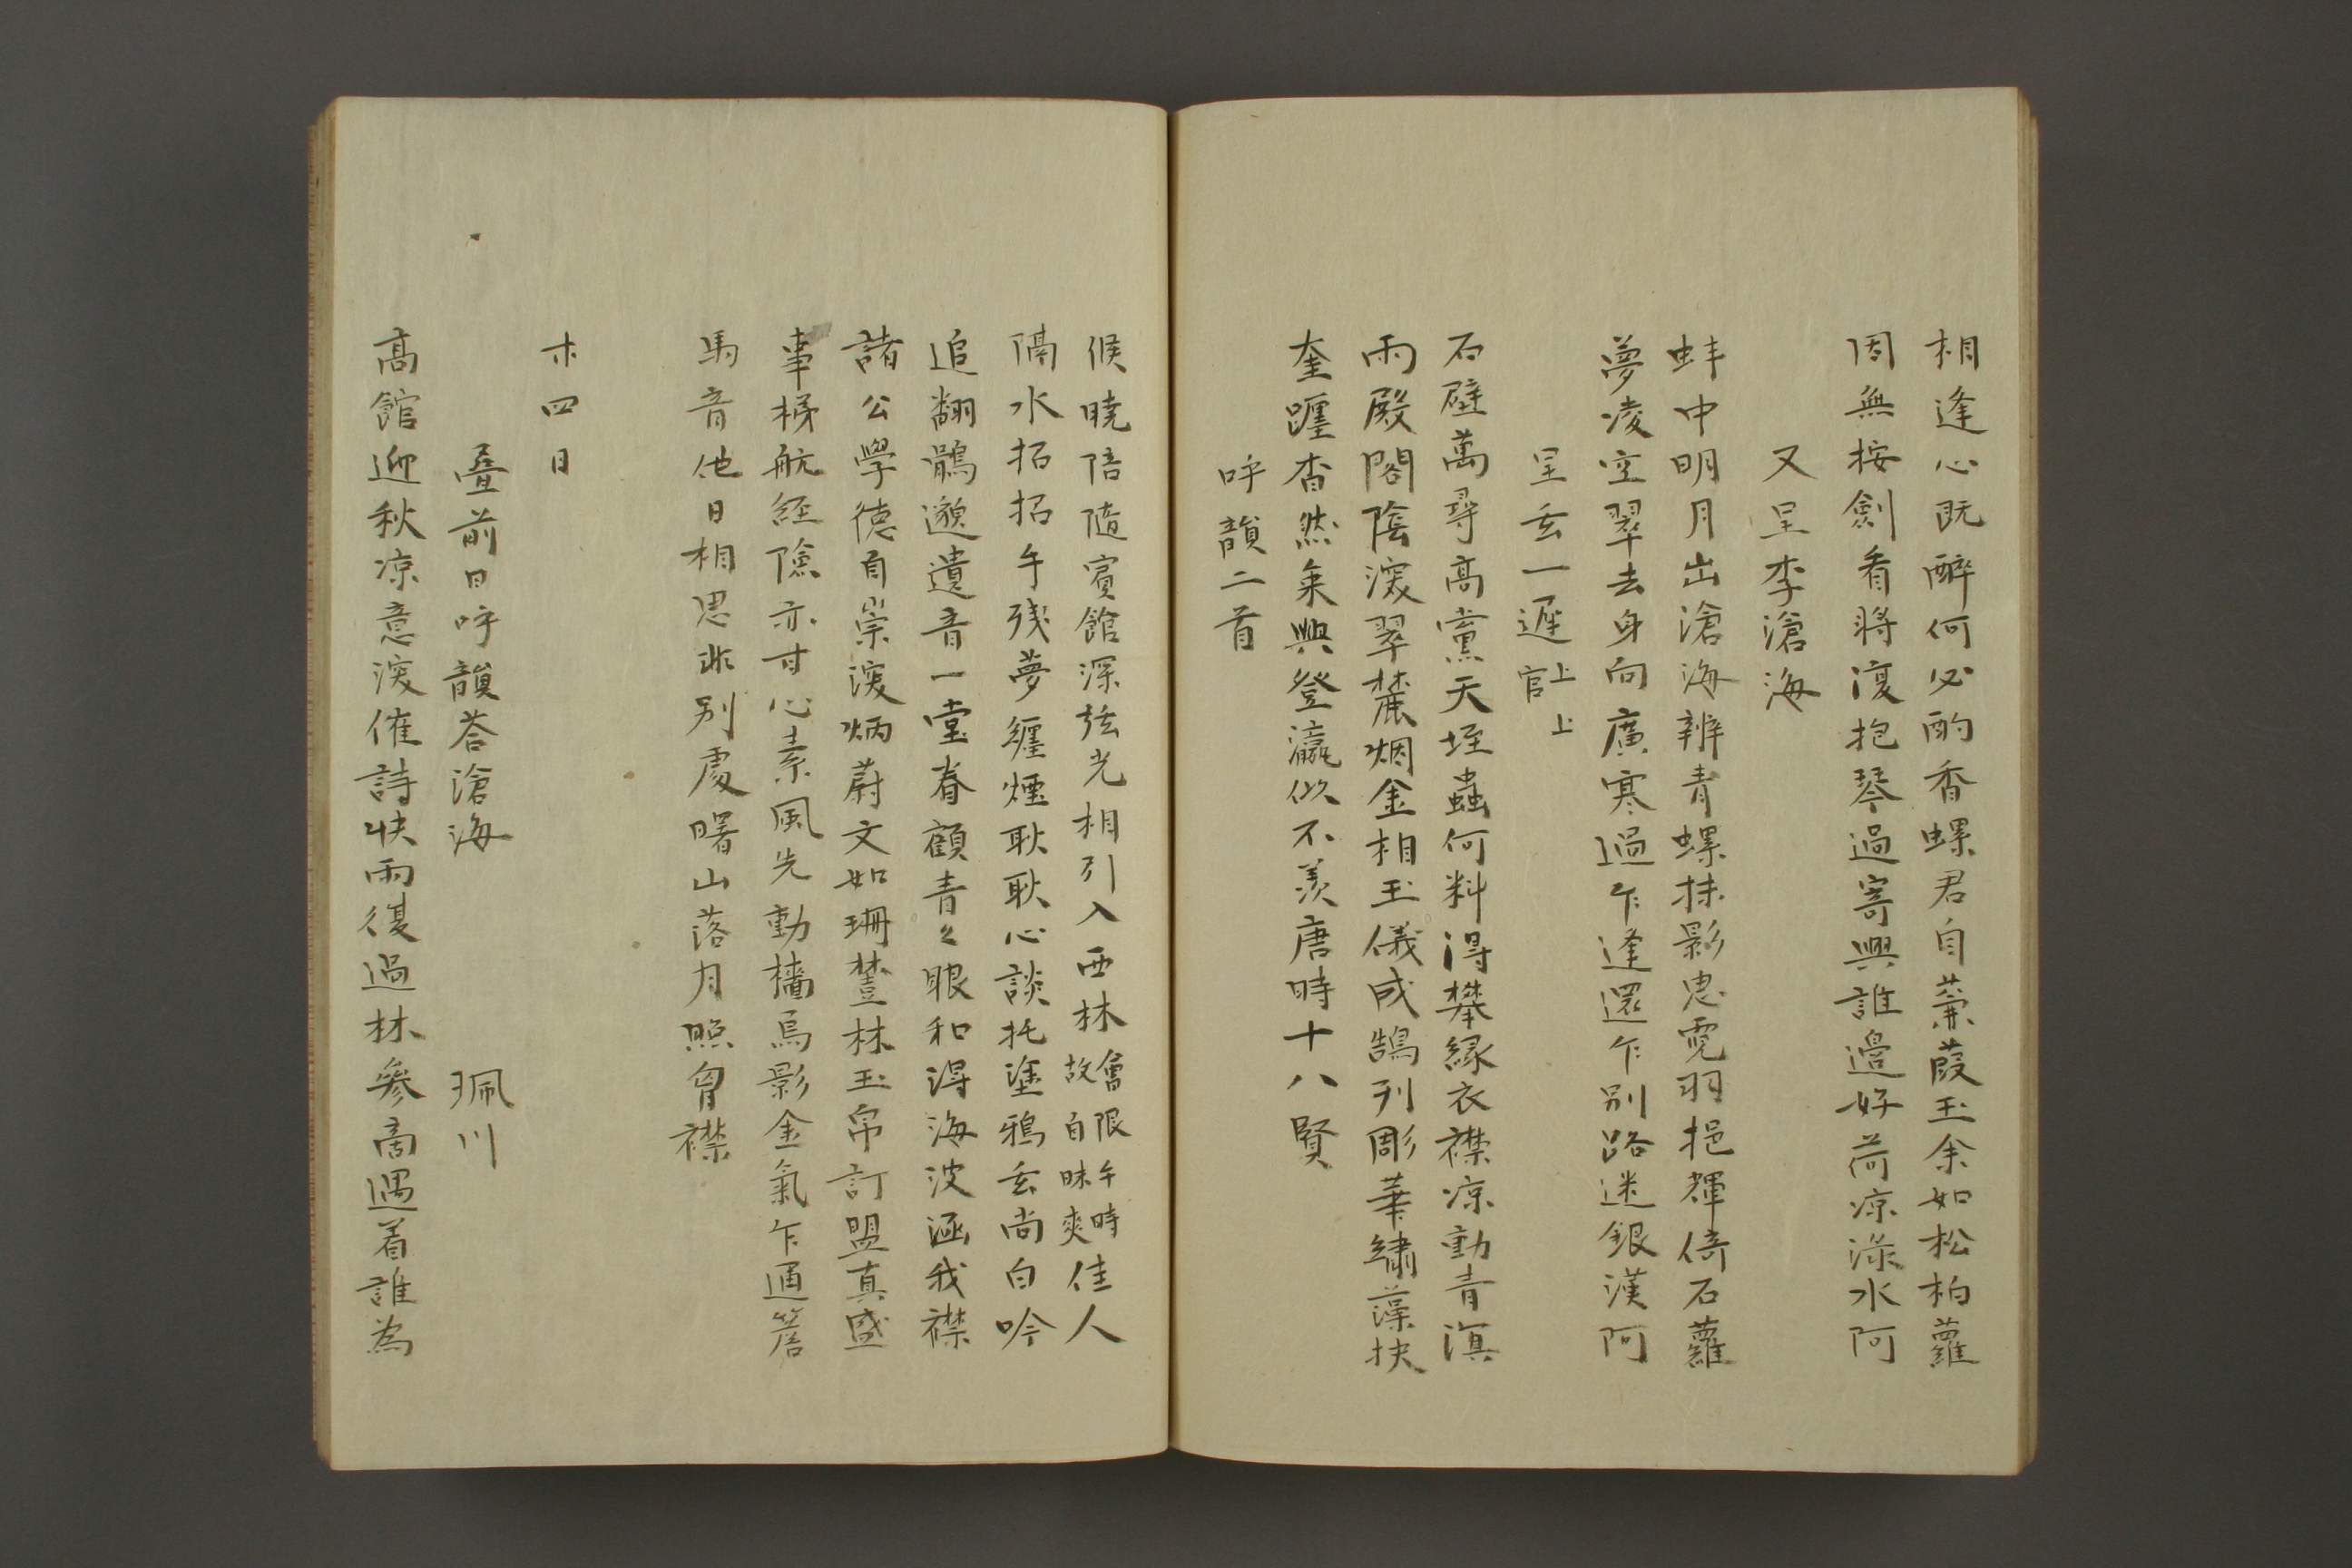 相逢心既醉何必酌香螺君自蒹葭玉余如松柏蘿
固無按劍看將復抱琴過寄興誰邊好荷凉渌水阿
又呈李滄海
蚌中明月出滄海辨青螺抹影忠霓羽挹輝倚石蘿
夢凌空翠去身向廣寒過乍逢還乍別路迷銀漢阿
呈玄一遲上上官
石壁萬尋高黨天垤蟲何料得攀緣衣襟凉動青滇
雨殿閣陰深翠麓烟金相玉儀成鵠列彫華繡藻抉
奎躔杳然乗興登瀛似不羨唐時十八賢
呼韻二首
候曉陪隨賓館深弦光相引入西林會限午時故自昧爽佳人
隔水招招手殘夢纏煙耿耿心談托塗鴉玄尚白吟
追翻鶻邈遺音一堂眷顧青々眼和得海波涵我襟
諸公學德自崇深炳蔚文如珊瑚林玉帛訂盟真盛
事梯航經險亦甘心素風先動檣烏影金氣乍通簷
馬音他日相思非別處曙山落月照胷襟
廿四日
疊前日呼韻荅滄海　珮川
高館迎秋凉意深催詩快雨復過林參商遇着誰為